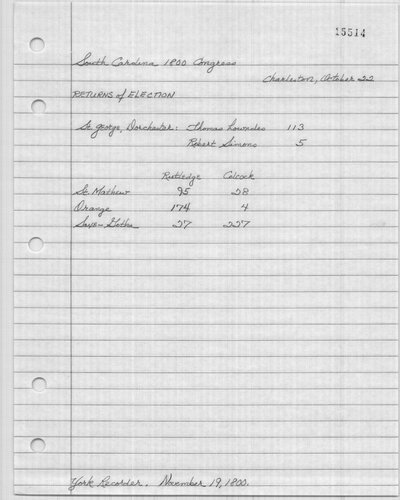 15514
South Carolina 1800 Congress
Charleston, October 22
RETURNS of ELECTION
St. George, Dorchester: Thomas Lowndes 113
Robert Simons 5
Rutledge Colcock
St. Mathew 95 28
Orange 174 4
Saxe-Gotha 27 227
York Recorder. November 19, 1800.